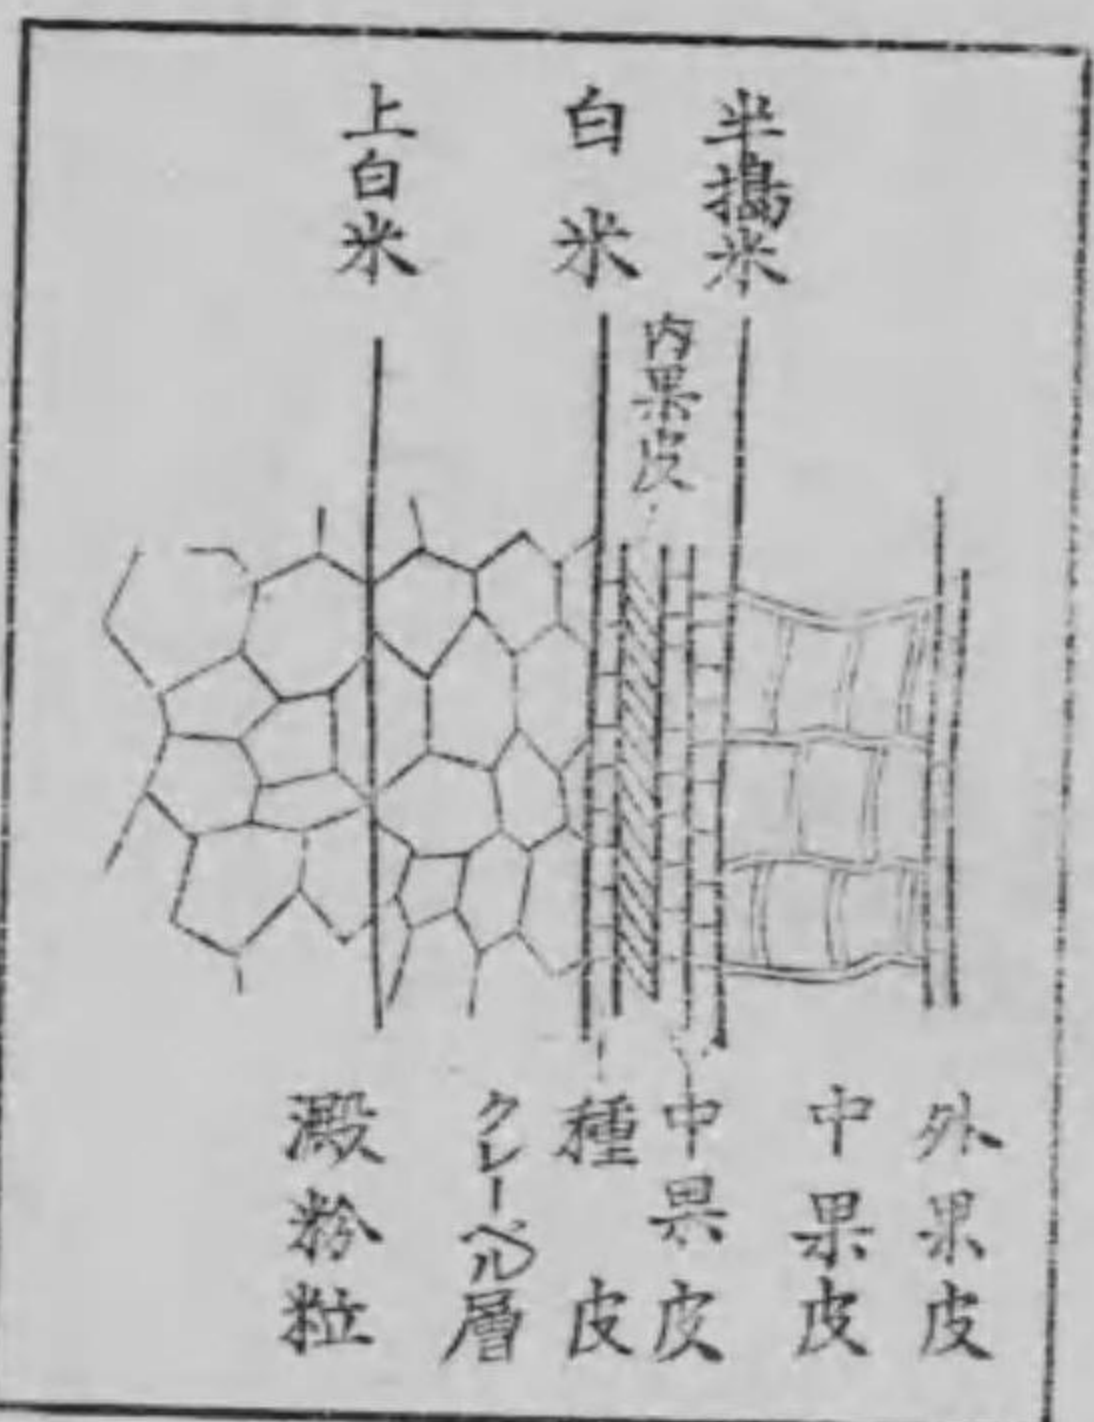 半搗米
白米
上白米
内果皮
外果皮
中果皮
中果皮
種皮
クレーベル層
澱粉粒